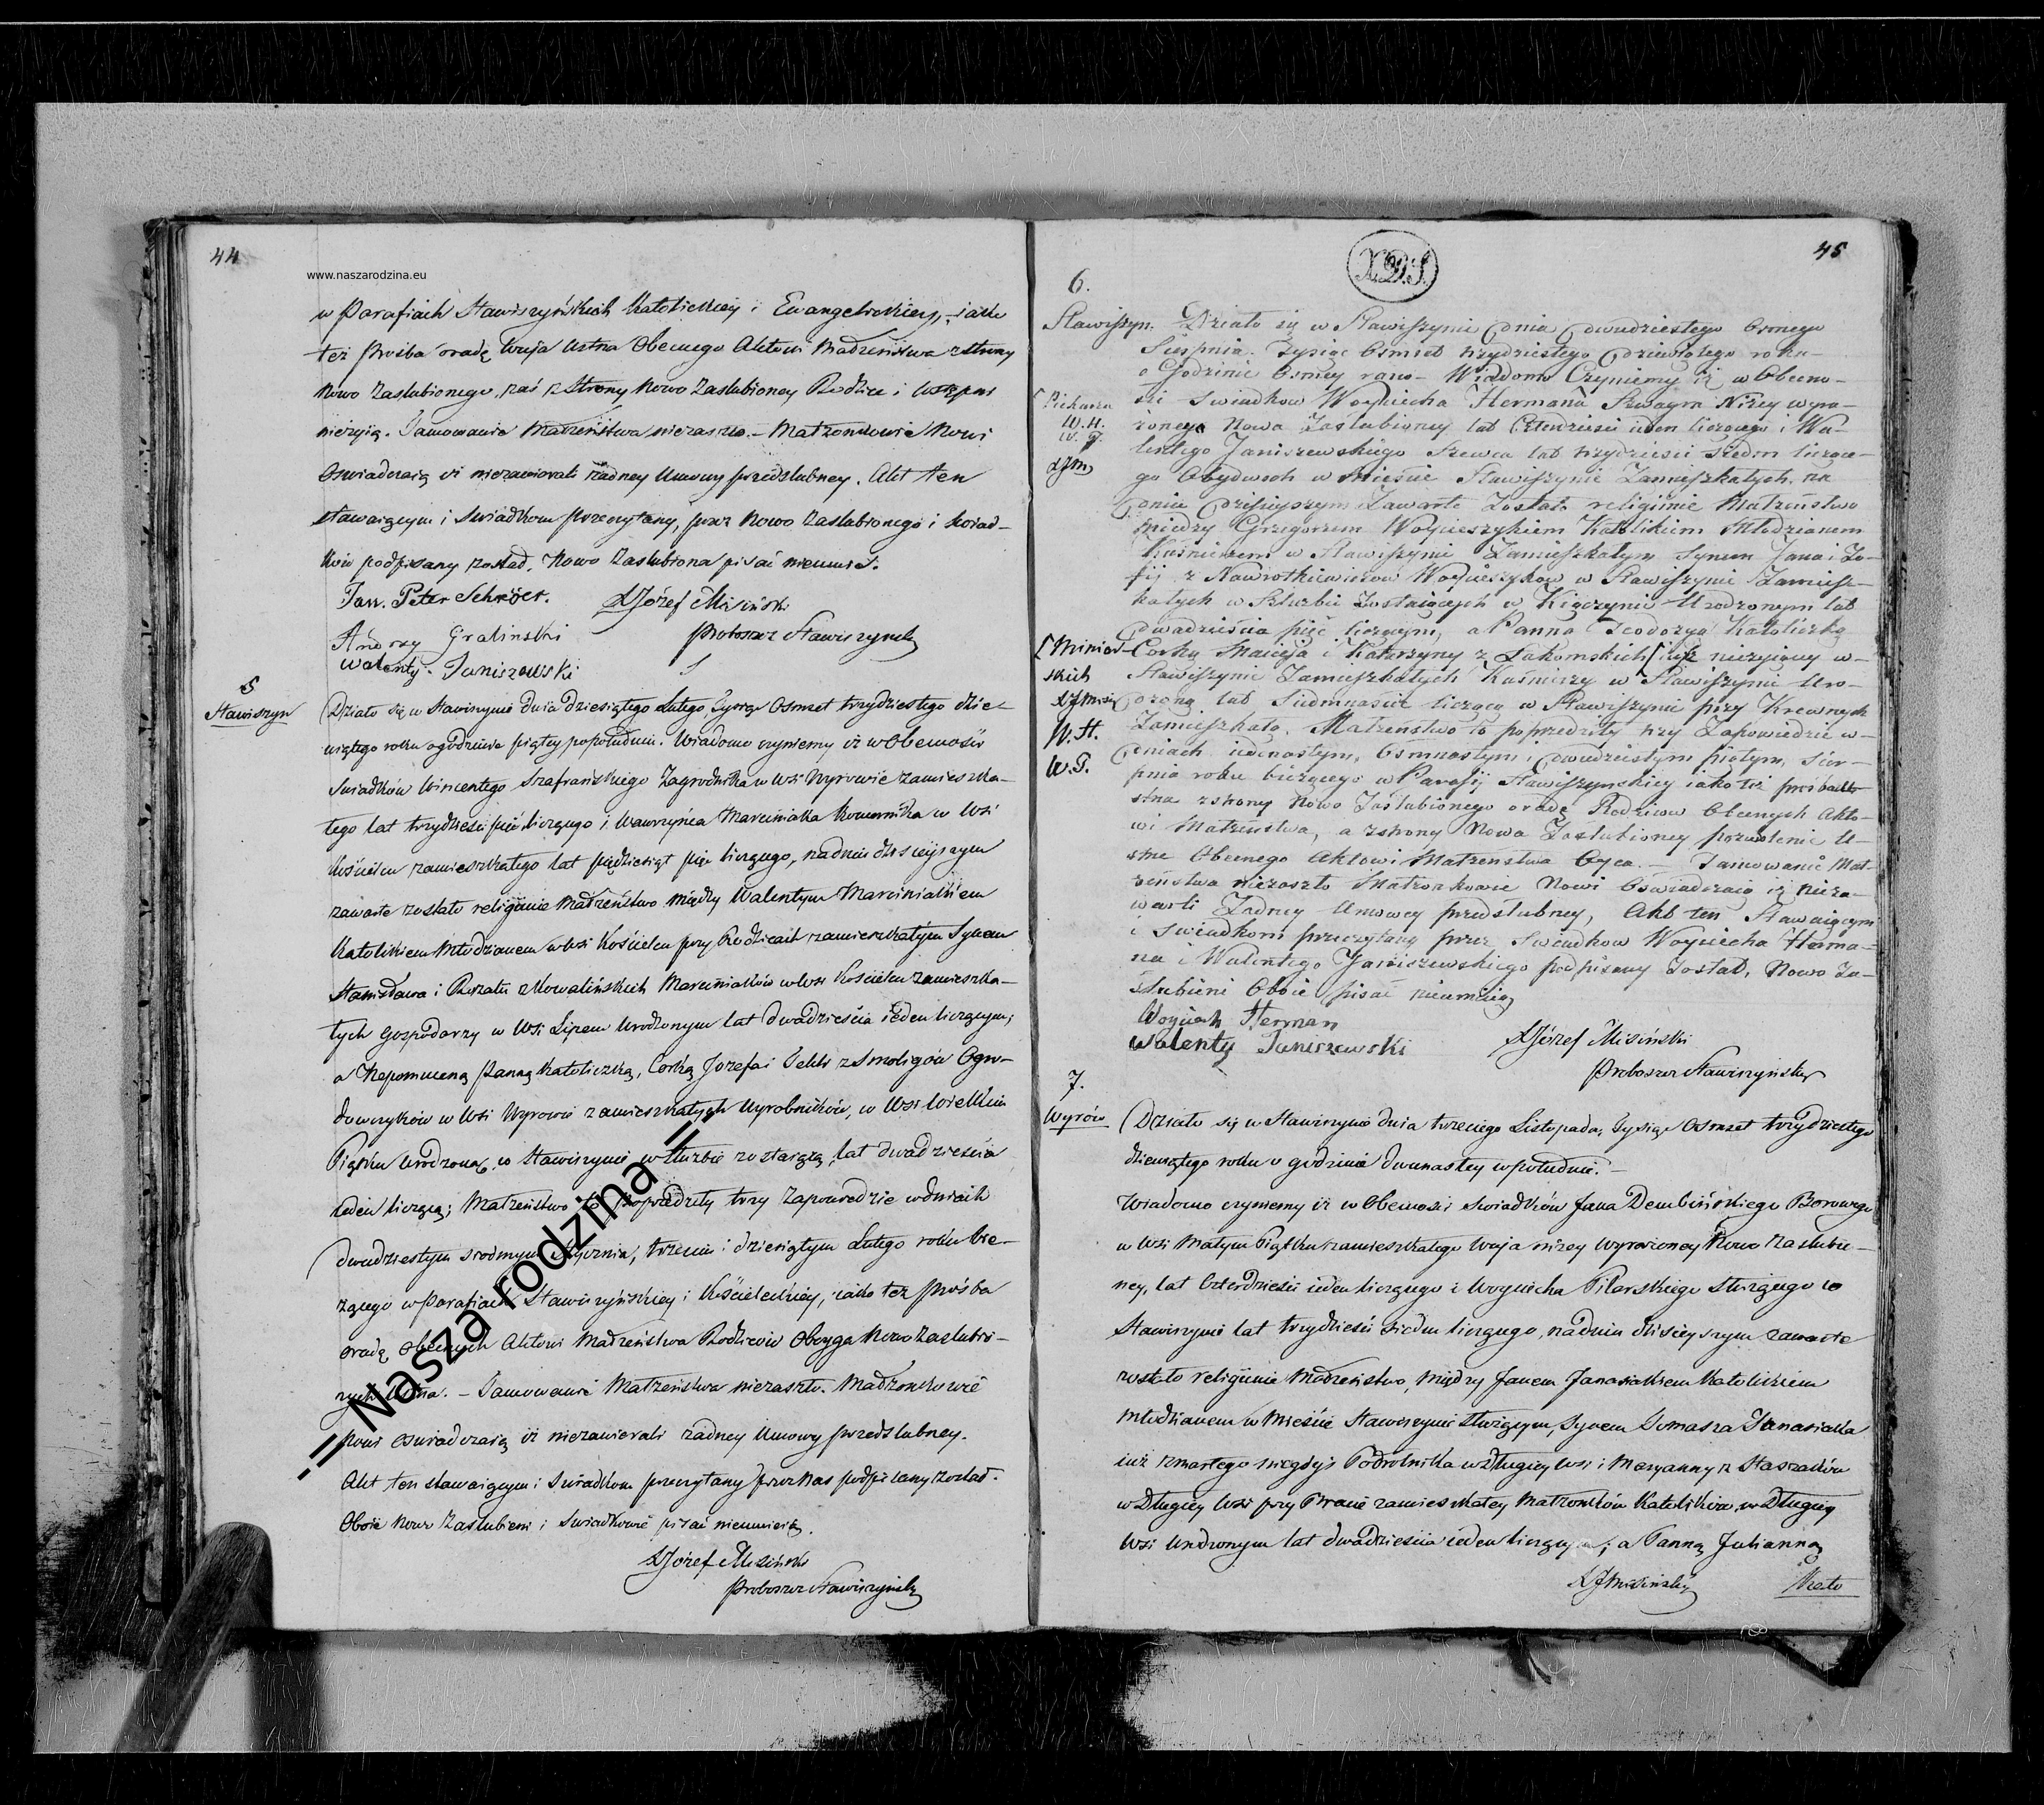 44
www.naszarodzina.eu
w Parafiach Stawiszyńskich Katolickiey i Ewangelickiey, iako
też prośba oradę Wuja Ustna Obecnego Aktowi Małżeństwa zstrony
Nowo Zaslubionego, zaś z Strony Nowo Zaslubioney Rodzice i
nieżyią. Tamowanie Małżeństwa niezaszło. – Małżonkowie Nowi
Oswiadczaią iż niezawierali żadney Umowy przedslubney. Akt ten
stawaiącym i Swiadkom przeczytany, przez Nowo Zaslubionego i Swiad–
ków podpisany został, Nowo Zaslubiona pisać nieumie.
Jan. Peter Schröer.
XJózef Misiński
Proboszcz Stawiszyński
Andrzy Gralinski
Walenty. Janiszewski
5
Stawiszyn
Działo się w Stawiszynie dnia dziesiątego Lutego Tysiąc Osmset trzydziestego dzie–
wiątego roku ogodzinie piątey popołudniu. Wiadomo czyniemy iż w Obecności
Swiadków Wincentego Szafrańskiego Zagrodnika w Wsi Wyrowie zamieszka–
łego lat trzydzieści pięć liczącego i Wawrzyńca Marciniaka Komornika w Wsi
Kościelcu zamieszkałego lat pięćdziesiąt pięć liczącego, nadniu dzisieyszym
zawarte zostało religijnie Małżeństwo między Walentym Marciniakiem
Katolikiem Młodzianem w Wsi Kościelcu przy Rodzicach zamieszkałym Synem
Stanisława i Rozalii z Kowalińskich Marciniaków w Wsi Kościelcu zamieszka–
łych Gospodarzy w Wsi Lipem Urodzonym lat dwadzieścia ieden liczącym;
a Nepomuceną Panną Katoliczką, Corką Jozefa i Tekli z Smoligów Ogro–
dowczyków w Wsi Wyrowie zamieszkałych Wyrobników, w Wsi Wielkim
Piątku Urodzoną, w Stawiszynie w Służbie zostaiącą, lat dwadzieścia
ieden liczącą; Małżeństwo to poprzedziły trzy Zapowiedzie w dniach
dwudziestym siodmym Stycznia, trzecim i dziesiątym Lutego roku bie–
żącego w Parafiach Stawiszyńskiey i Kościeleckiey, iako też prośba
oradę obecnych Aktowi Małżeństwa Rodziców Oboyga Nowo Zaslubio–
nych Ustna. – Tamowanie Małżeństwa niezaszło. Małżonkowie
Nowi oswiadczaią iż niezawierali żadney Umowy przedslubney.
Akt ten stawaiącym i Swiadkom przeczytany przez Nas podpisany został.
Oboie Nowo Zaslubieni i Swiadkowie pisać nieumieią.
XJózef Misiński
Proboszcz Stawiszyński
.-= Nasza rodzina =-.
45
6.
Stawiszyn.
Działo się w Stawiszynie dnia dwudziestego Osmego
Sierpnia. Tysiąc Osmset trzydziestego dziewiątego roku–
o Godzinie Osmey rano– Wiadomo Czyniemy iż w Obecno–
ści Swiadkow Woyciecha Hermana Szwagra Niżey wyra–
[Piekarza
W.H.
XJM
żoneya Nowa Zaslubioney lat Czterdzieści ieden liczącego i Wa–
lentego Janiszewskiego Szewca lat trzydzieści siedm liczące–
go Obydwoch w Mieście Stawiszynie Zamieszkałych. na
dniu dzisieyszym Zawarte Zostało religijnie Małżeństwo
między Grzegorzem Woycieszykiem Katolikiem Młodzianem
Kuśnierzem w Stawiszynie Zamieszkałym Synem Jana i Zo–
fij z Nawrotkiewiczow Woycieszykow w Stawiszynie Zamiesz–
kałych w Służbie Zostaiących w Kiączynie Urodzonym lat
dwadzieścia pięć liczącym, a Panna Teodozya Katoliczką
[Miniow–
skich
XJMisi
W.H.
Corką Macieja i Katarzyny z Łakomskich[ iuż nieżyiącey w–
Stawiszynie Zamieszkałych Kuśnierzy w Stawiszynie Uro–
dzoną lat Siedmnaście liczącą w Stawiszynie przy Krewnych
Zamieszkało. Małżeństwo to poprzedziły trzy Zapowiedzie w–
dniach iedenastym, Osmnastym i dwudziestym piątym, Sier–
pnia roku bieżącego w Parafij Stawiszynskiey iako też prośba U–
stna zstrony Nowo Zaslubionego oradę Rodzicow Obecnych Akto–
wi Małżeństwa, a zstrony Nowa Zaslubioney pozwolenie U–
stne Obecnego Aktowi Małżeństwa Oyca. – Tamowanie Mał–
żeństwa niezaszło Małżonkowie Nowi Oswiadczaią iż nieza–
warli Żadney Umowey przedslubney, Akt ten Stawaiącym
i Swiadkom przeczytany przez Swiadkow Woyciecha Herma–
na i Walentego Janiszewskiego podpisany Został, Nowo Za–
slubieni Oboie pisać nieumieią
Woyciech Herman
Walenty Janiszewski
XJózef Misiński
Proboszcz Stawiszyński
7.
Wyrów
Działo się w Stawiszynie dnia trzeciego Listopada, Tysiąc Osmset trzydziestego
dziewiątego roku o godzinie dwunastey wpołudnie. –
Wiadomo czyniemy iż w Obecności Swiadków Jana Dembińskiego Borowego
w Wsi Małym Piątku zamieszkałego Wuja niżey wyrażoney Nowo Zaslubio–
ney, lat Czterdzieści ieden liczącego i Woyciecha Pilarskiego Służącego w
Stawiszynie lat trzydzieści siedm liczącego, nadniu dzisieyszym zawarte
zostało religijnie Małżeństwo, między Janem Janasiakiem Katolikiem
Młodzianem w Mieście Stawiszynie służącym, Synem Tomasza Janasiaka
iuż zmarłego niegdyś Podrolnika w Długiey Wsi i Maryanny z Staszaków
w Długiey Wsi przy Bracie zamieszkałey Małżonków Katolików, w Długiey
Wsi Urodzonym lat dwadzieścia ieden liczącym; a Panną Julianną
XJMisiński